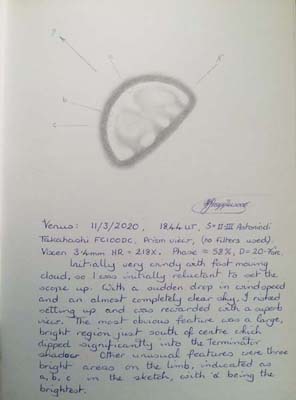 a
b
c
Venus: 11/3/2020, 1844 UT, S=II-III Antoniadi
Takahashi FC100DC. Prism view, (no filters used).
Vixen 3.4mm HR = 218X. Phase = 58%, D=20
Initially very windy with fast moving
cloud, so I was initially reluctant to set the
scope up. With a sudden drop in windspeed
and an almost completely clear sky, I risked
setting up and was rewarded with a superb
view. The most obvious feature was a large,
bright region just south of centre which
dipped significantly into the Terminator
shadow. Other unusual features were three
bright areas on the limb, indicated as
a, b, c in the sketch, with 'a' being the
brightest.